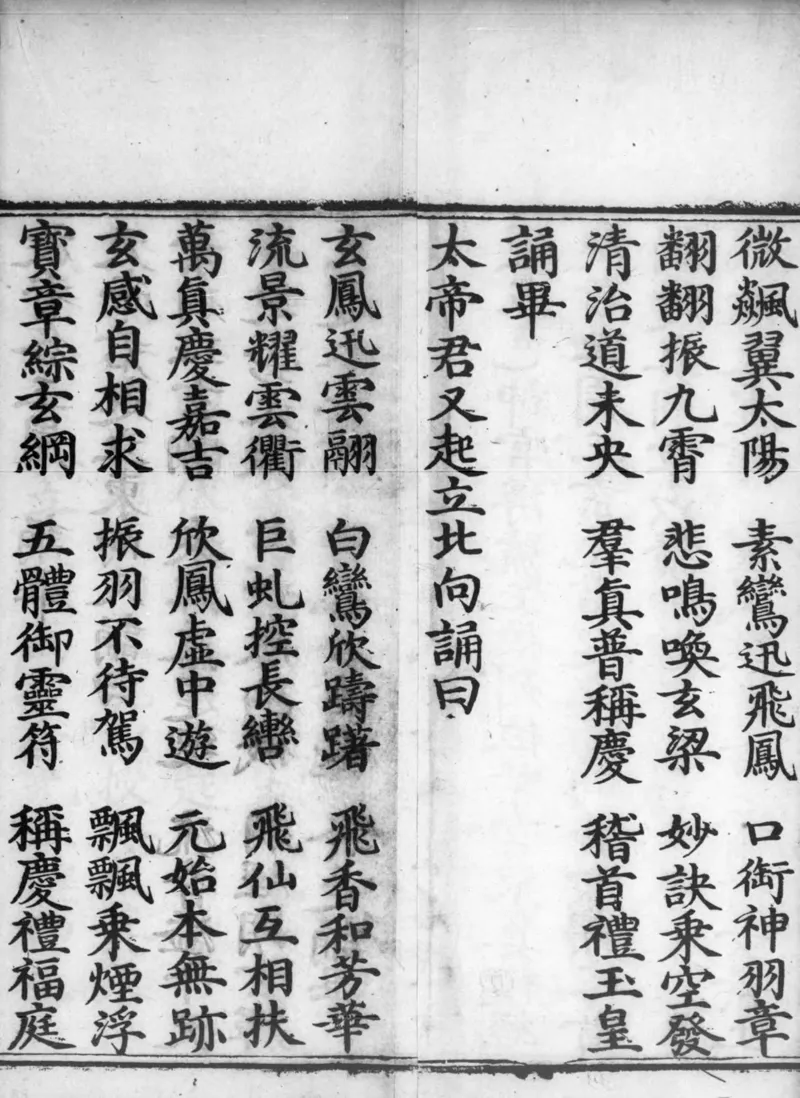 微飈翼太陽　素鸞迅飛鳳　口銜神羽章
翻翻振九霄　悲鳴喚玄梁　妙訣乘空發
清治道未央　羣真普稱慶　稽首禮玉皇
誦畢
太帝君又起立北向誦曰
玄鳳迅雲翮　白鸞欣躊躇　飛香和芳華
流景耀雲衢　巨虬控長轡　飛仙互相扶
萬真慶嘉吉　欣鳳虛中遊　元始本無跡
玄感自相求　振羽不待駕　飄飄乘煙浮
寶章綜玄綱　五體御靈符　稱慶禮福庭